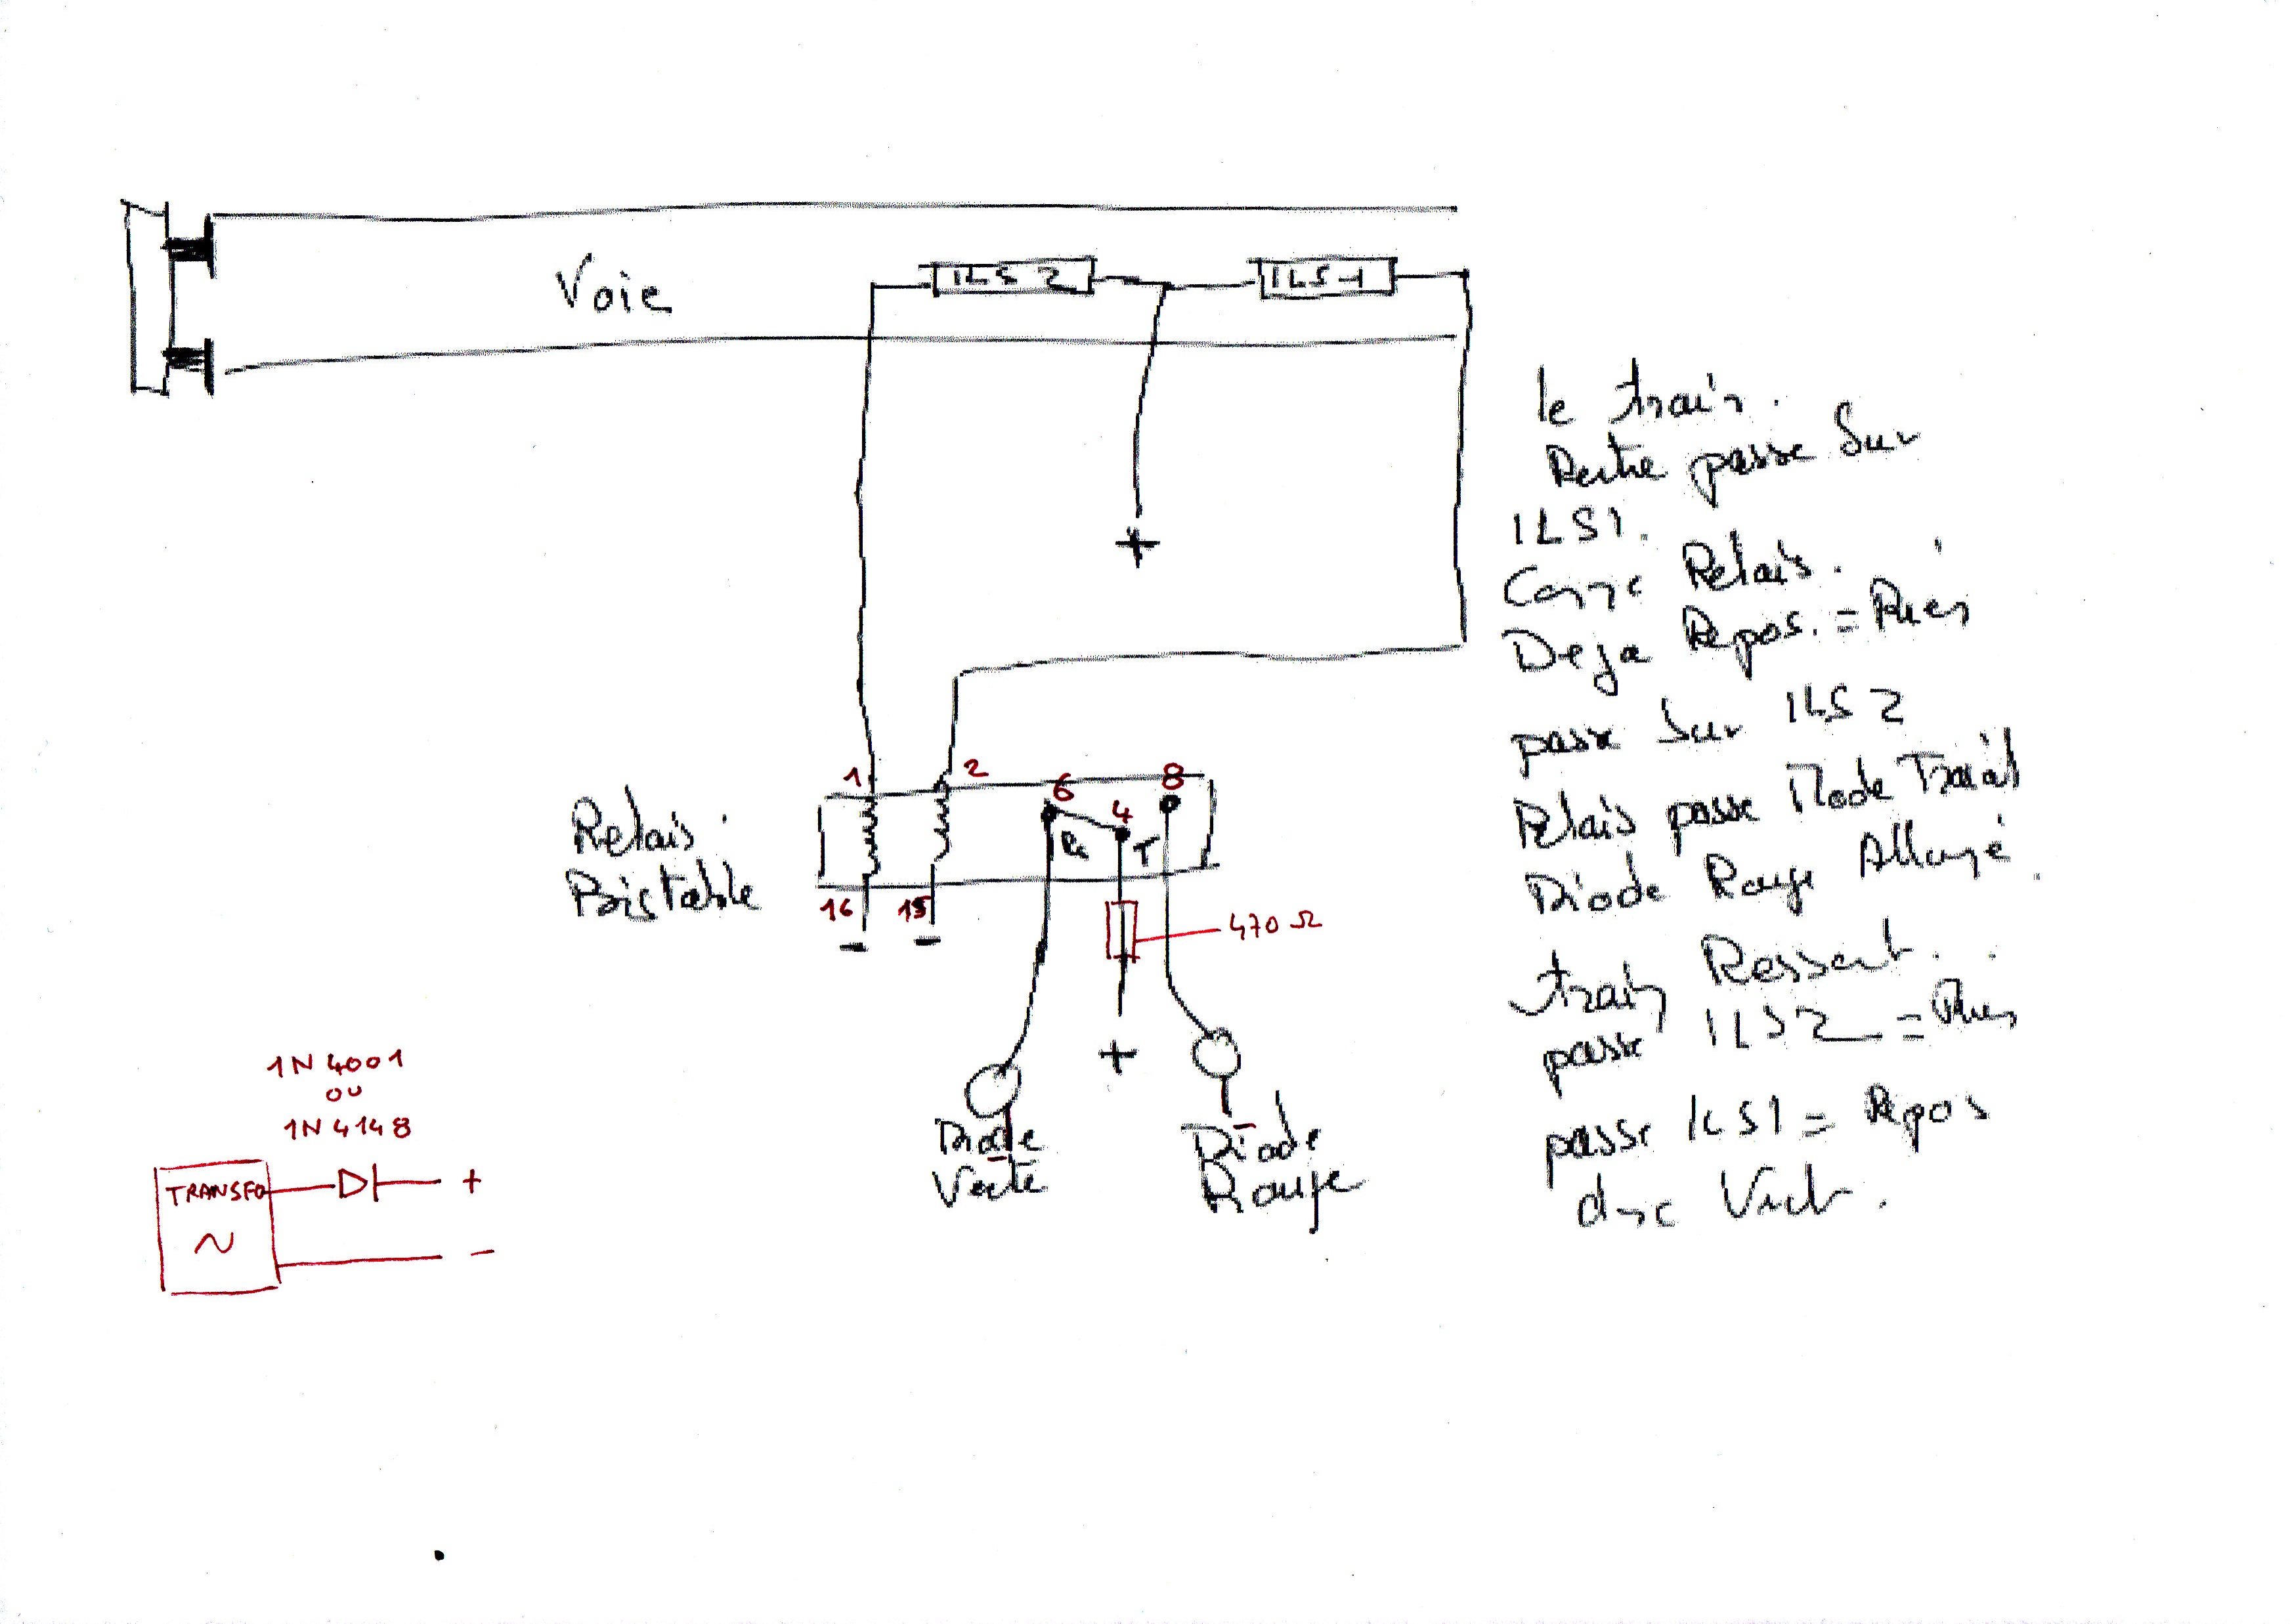 Voie
ILS 2
ILS 1
+
le train.
Rentre passe Sur
ILS1.
Relais.
Deja Repos. = Rien
passe Sur ILS 2
Relais passe Mode Travail
Diode Rouge Allumé.
train Ressort.
passe ILS2 = Rien
passe ILS1 = Repos
donc Vert.
Relais
Bistable
1
2
6
4
8
R
T
16
15
-
-
470 Ω
+
-
-
Diode
Verte
Diode
Rouge
1N4001
OU
1N4148
TRANSFO
~
+
-